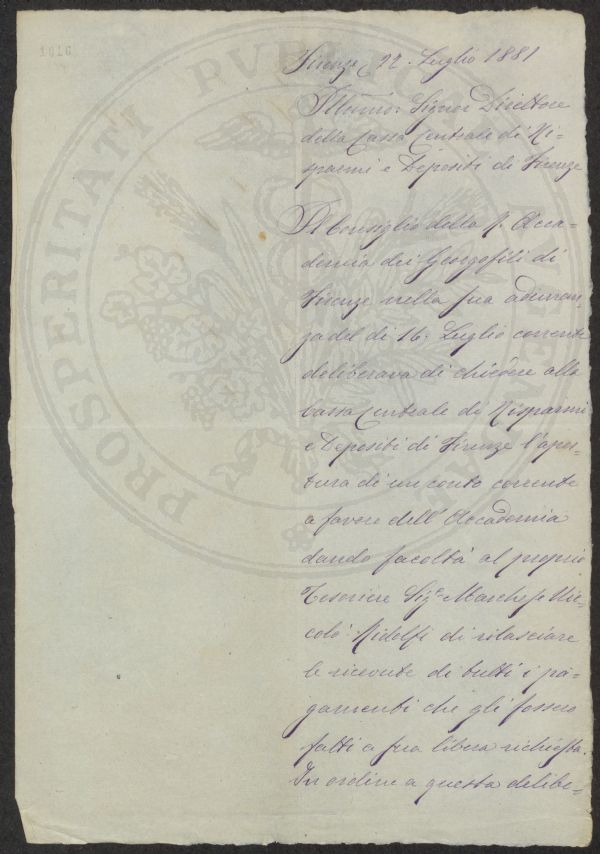 1016
PROSPERITATI PUBLICAE AUGENDAE
Firenze, 22. Luglio 1881
Illmo: Signor Direttore
della Cassa Centrale di Ri=
sparmi e Depositi di Firenze
Il Consiglio della R. Acca=
demia dei Georgofili di
Firenze nella sua adunan=
za del dì 16. Luglio corrente
deliberava di chiedere alla
Cassa Centrale di Risparmi
e Depositi di Firenze l'aper=
tura di un conto corrente
a favore dell'Accademia
dando facoltà al proprio
Tesoriere Sigr. Marchese Nic=
colò Ridolfi di rilasciare
le ricevute di tutti i pa=
gamenti che gli fossero
fatti a sua libera richiesta.
In ordine a questa delibe=